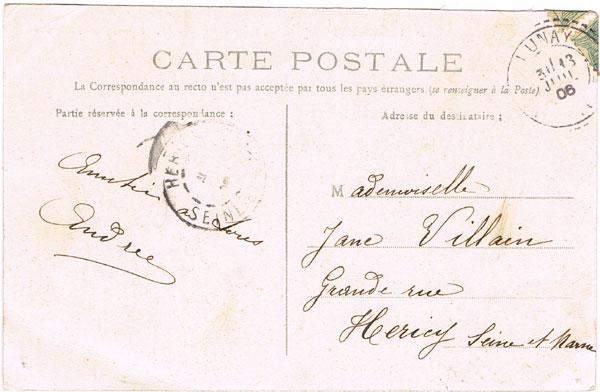 CARTE POSTALE
La Correspondance au recto n'est pas acceptée par tous les pays étrangers (se renseigner à la Poste)
Partie réservée à la correspondance :
Adresse du destinataire ;
LUNAY
3 13
JUIL
06
HER
SEINE
Amitiés
à tous
Andrée
Mademoiselle
Jane Villain
Grande rue
Hericy Seine et Marne